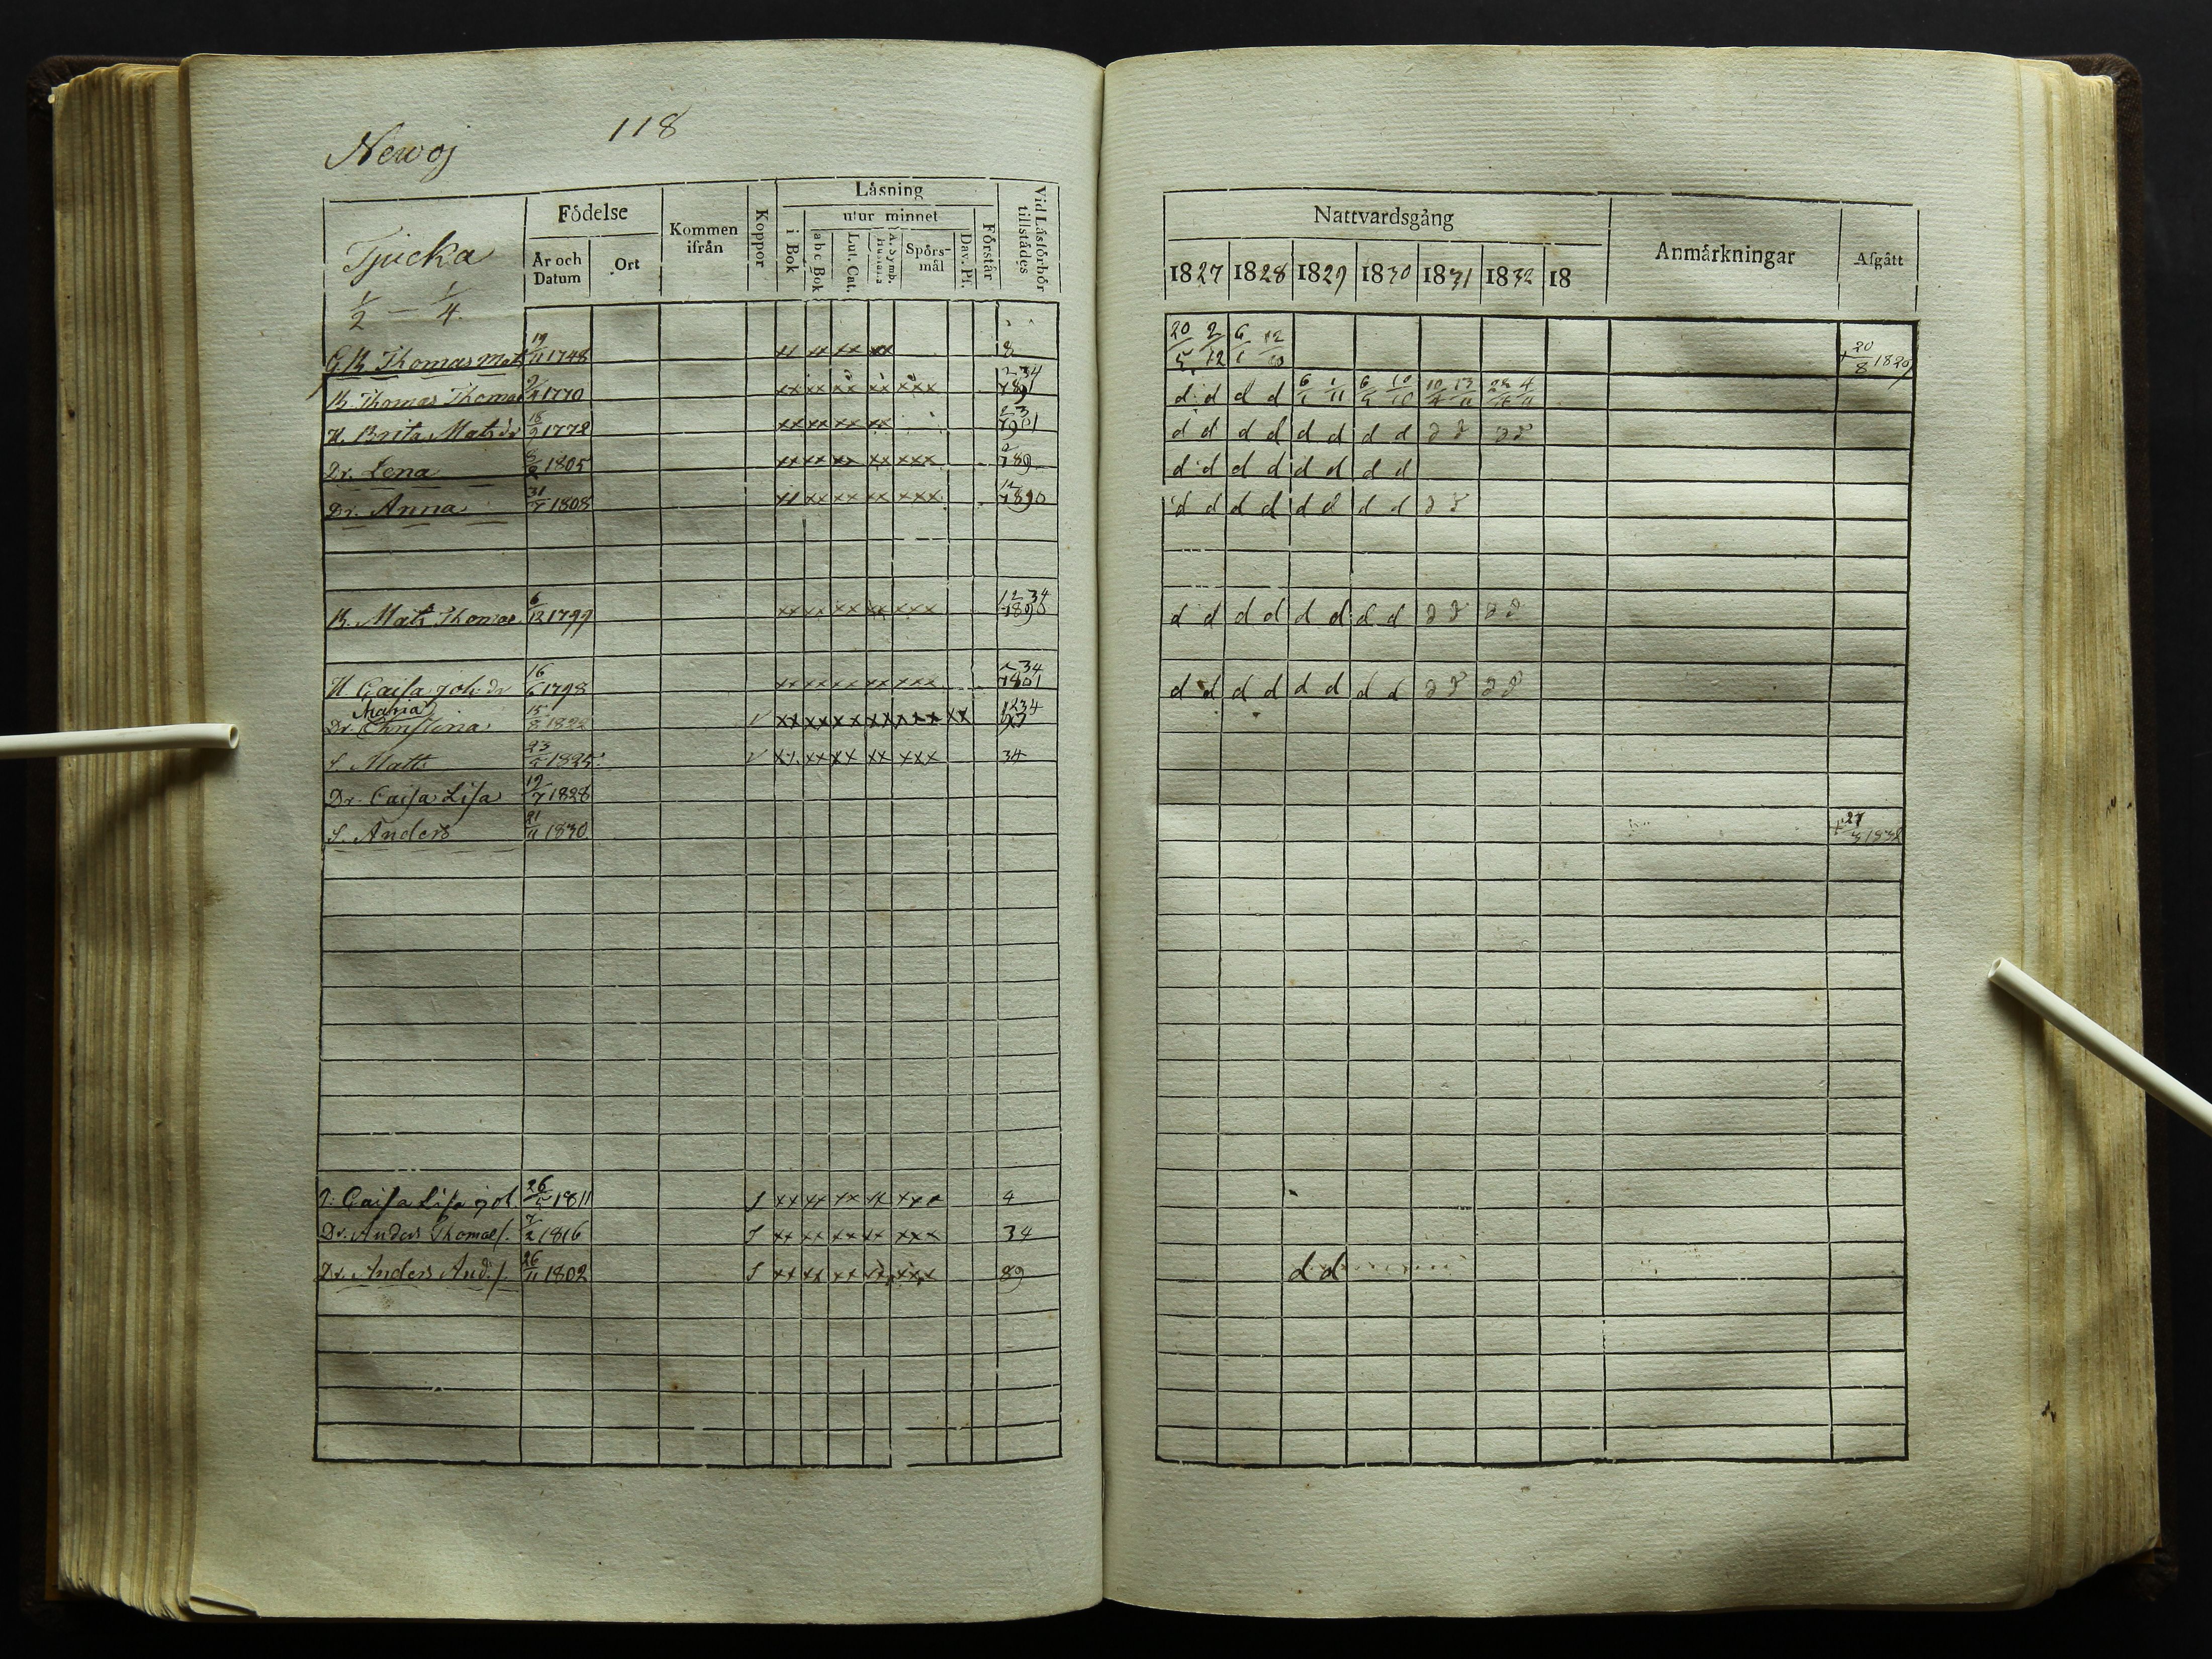 118
Tjucka
1/2 — 1/4
Födelse
År och Datum
Ort
Kommen ifrån
Koppor
Läsning
i Bok
utur minnet
abc Bok
Lut. Cat.
Spörs-mål
Dav. Ps.
Förstår
Vid Läsförhör tillstädes
G.B. Thomas Mats 19/11 1748 xx xx xx xx 8
B. Thomas Thomas 1770 xx xx xx xx xxx
H. Brita Mats dr 18/9 1772 xx xx xx xx
Dr. Lena 1805 xx xx xx xx xxx 789
Dr. Anna 31/7 1808 xx xx xx xx xxx 7890
B. Mats Thomas 6/12 1799 xx xx xx xx xxx 1234 7890
H. Caisa Joh. dr 16/6 1798 xx xx xx xx xxx
Maria
Dr. Christina 15/8 1822 v xx xx xx xx xxx xx 1234
S. Matts 1825 v xx xx xx xx xxx 34
Dr. Caisa Lisa 19/7 1828
S. Anders 21/11 1830
Caisa Lisa Joh. 26/5 1811 S xx xx xx xx xxx 4
Dr. Anders Thomas s. 7/2 1816 S xx xx xx xx xxx 34
Dr. Anders And. s. 26/11 1802 S xx xx xx xx xxx 89
Nattvardsgång
Anmärkningar
Afgått
1827 1828 1829 1830 1831 1832 18
20/5 2/12 6/1 12/10 + 20/8 1829
d d d d 6/1 1/11 10/10 10/4 13/11 4/11
d d d d d d d d d d d d
d d d d d d d d
d d d d d d d d d d
d d d d d d d d d d d d
d d d d d d d d d d d d
+ 27/3 1832
d d